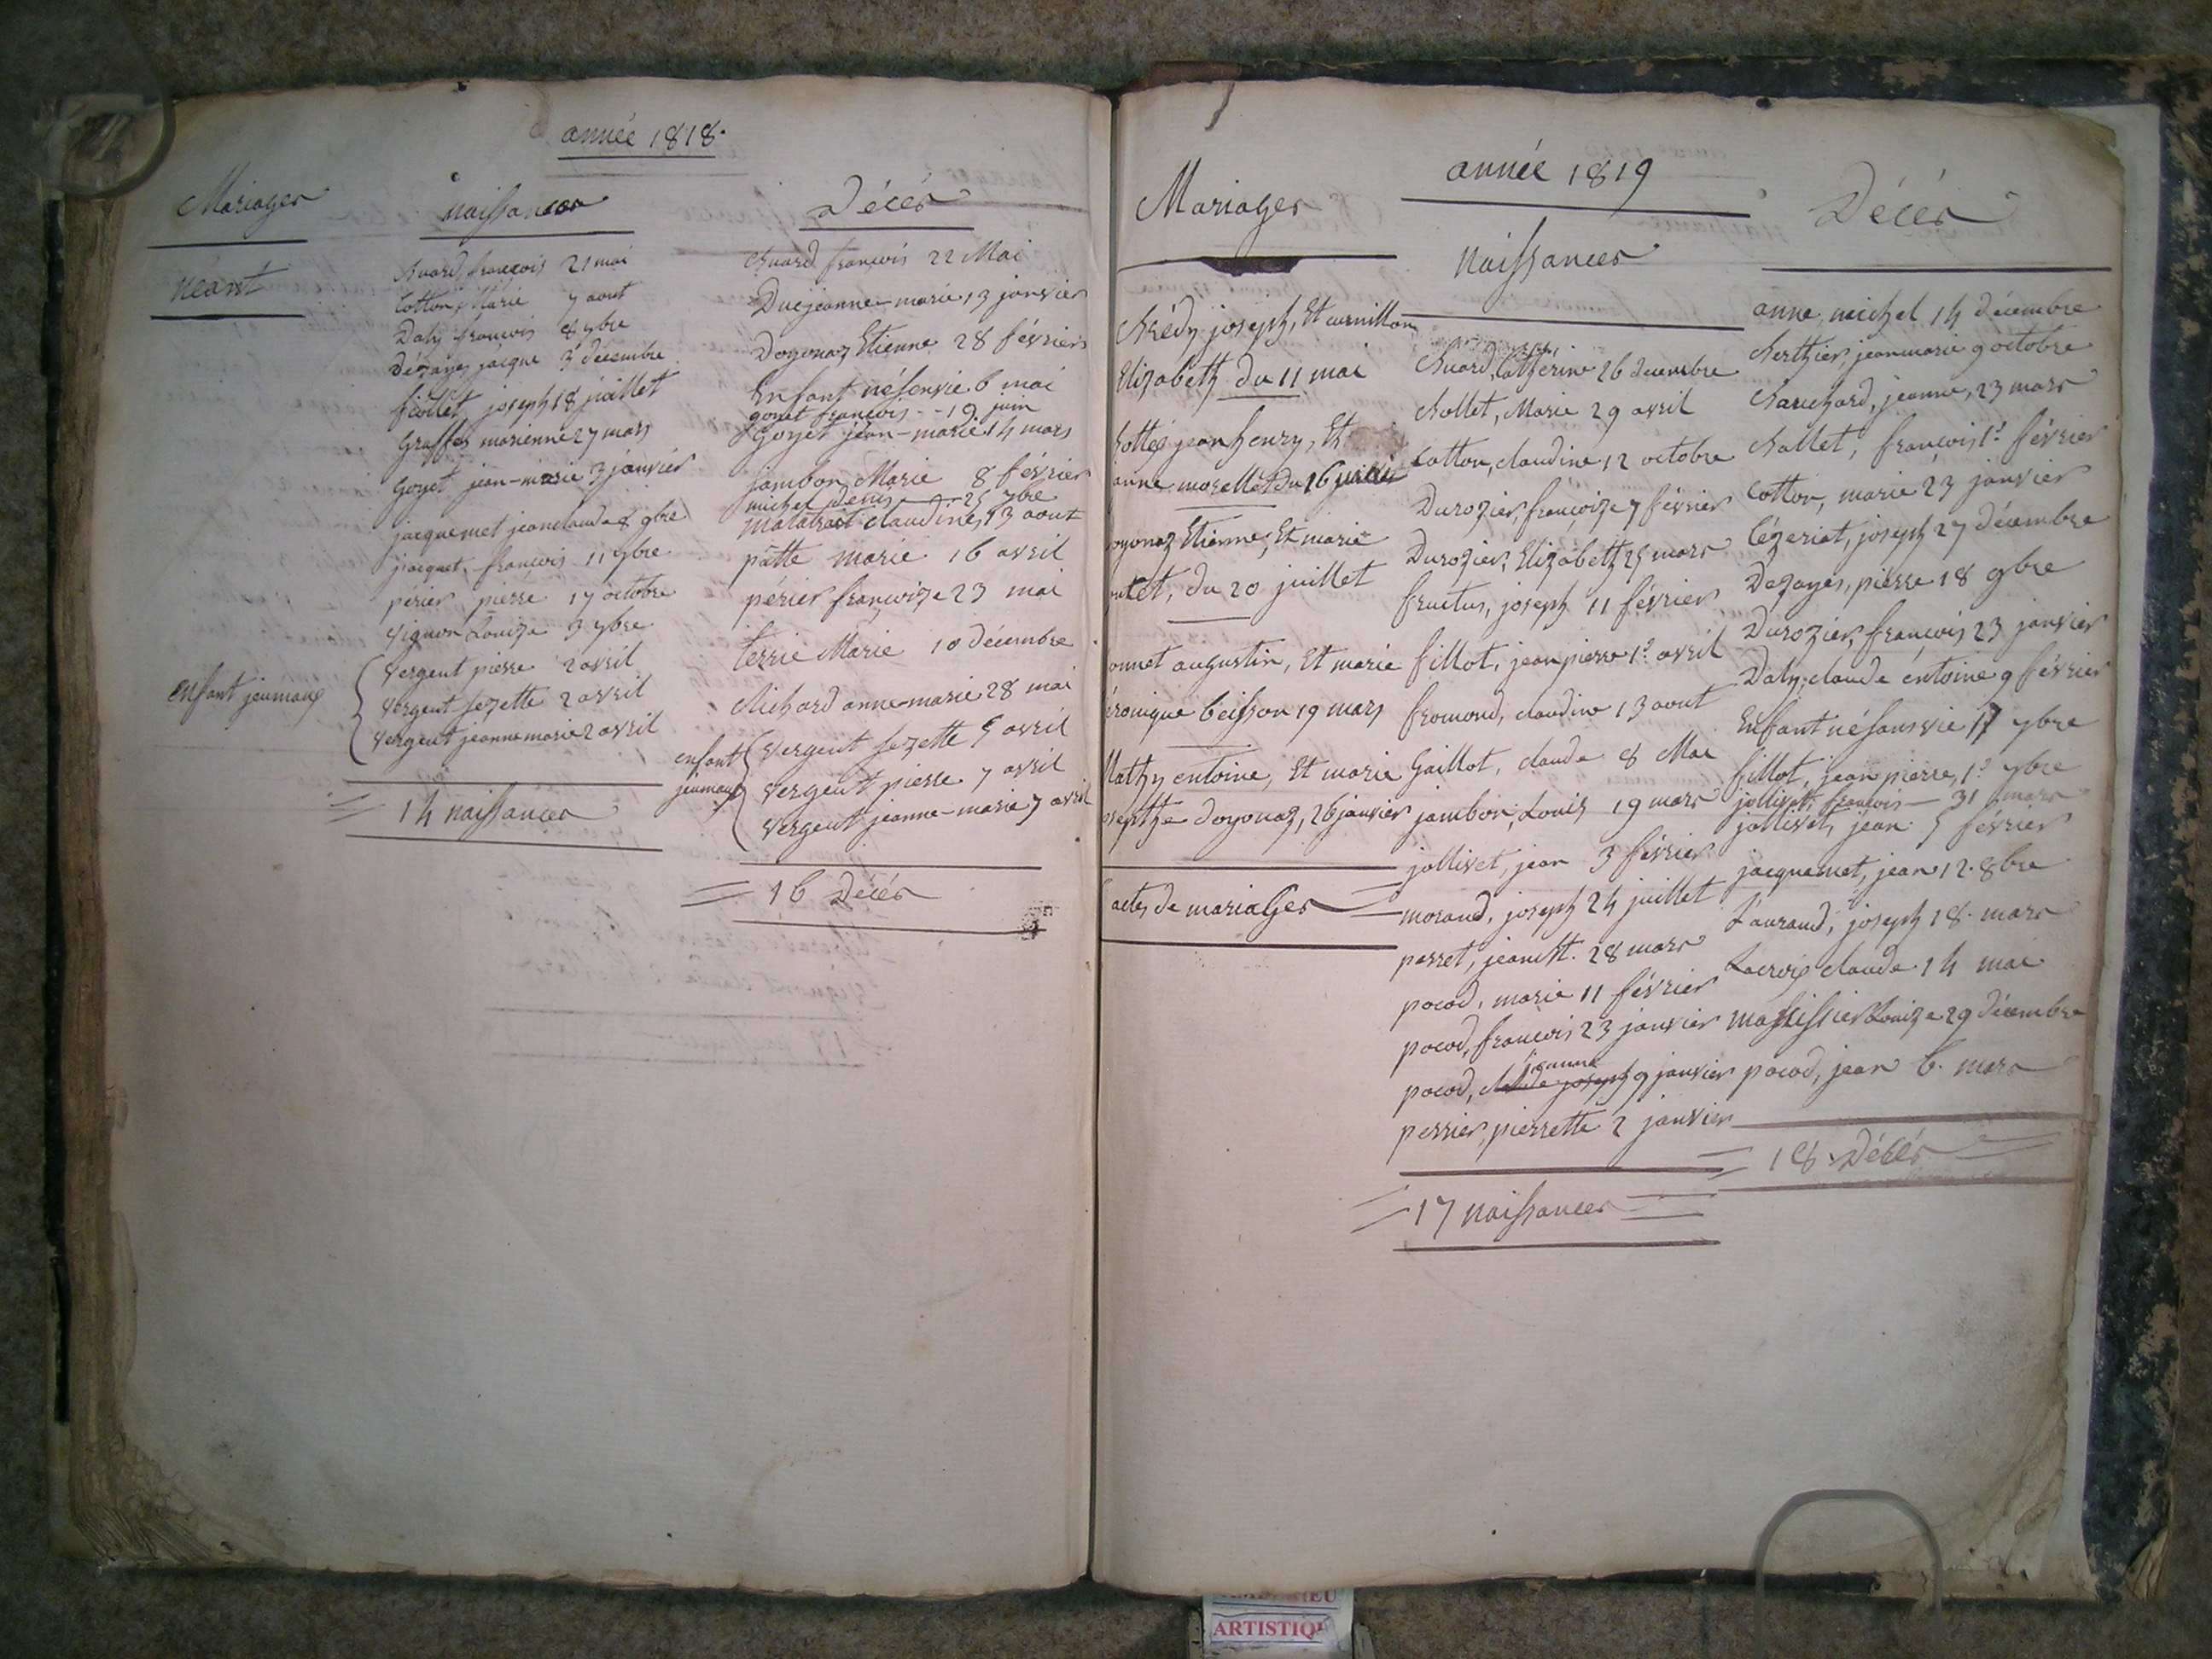 année 1818.
Mariages
néant
enfant jeumaux
naissances
Buard, françois 21 mai
Cotton, Marie 7 aout
Daly françois 8 7bre
Dézayes jacque 3 décembre
fiollet, joseph 18 juillet
Graffez marienne 27 mars
Goyet jean-marie 3 janvier
jacquemet jeanclaude 8 9bre
jiacquet, françois 11 7bre
périer, pierre 17 octobre
Vignon Louize 3 7bre
Vergent pierre 2 avril
Vergent fezette 2 avril
Vergent jeanne marie 2 avril
14 naissances
Décés
Buard françois 22 Mai
Duc jeanne-marie 13 janvier
Doyonax Etienne 28 février
Enfant né sen vie 6 mai
goyet françois - - 19. juin
Goyet jean-marie 14 mars
jambon Marie 8 février
michel Denis 25 7bre
claudine, 13 aout
patte marie 16 avril
périer françoize 23 mai
Terrie Marie 10 décembre
Richard anne-marie 28 mai
enfant jeumaux
Vergent fezette 5 avril
Vergent pierre 7 avril
Vergent jeanne-marie 7 avril
16 Décés
année 1819
Mariages
joseph, Et curnillon
Elizabeth du 11 mai
jean henry, Et
anne morellet du 16
oyonax Etienne, Et marie
du 20 juillet
onnet augustin, Et marie
éronique beisson 19 mars
Mathy entoine, Et marie
osepthe doyonax, 26 janvier
actes de mariages
naissances
Buard, Catherine 26 decembre
Bollet, Marie 29 avril
Cotton, claudine 12 octobre
Durozier, françoize 7 février
Durozier, Elizabeth 25 mars
fructus, joseph 11 février
fillot, jean pierre 1er avril
fromond, claudine 13 aout
Gaillot, claude 8 Mai
jambon, Louis 19 mars
jollivet, jean 3 février
morand, joseph 24 juillet
perret, jean Bt. 28 mars
pocod, marie 11 février
pocod, françois 23 janvier
jeanne
pocod, claude joseph 9 janvier
perrier, pierrette 2 janvier
17 naissances
Décés
anne, michel 14 décembre
Berthier, jeanmarie 9 octobre
Blanchard, jeanne, 23 mars
Ballet, françois, 1er février
Cotton, marie 23 janvier
Cézeriat, joseph 27 décembre
Dezayes, pierre 18 9bre
Durozier, françois 23 janvier
Daly, claude entoine 9 février
Enfant né sans vie 17 7bre
fillot, jean pierre, 1er 7bre
jollivet, françois — 31 mars
jollivet, jean 5 février
jacquemet, jean 12. 8bre
Laurand, joseph 18. mars
Lacroix claude 14 mai
massissier Louize 29 décembre
pocod, jean 6. mars
18 Décés
ARTISTIQ